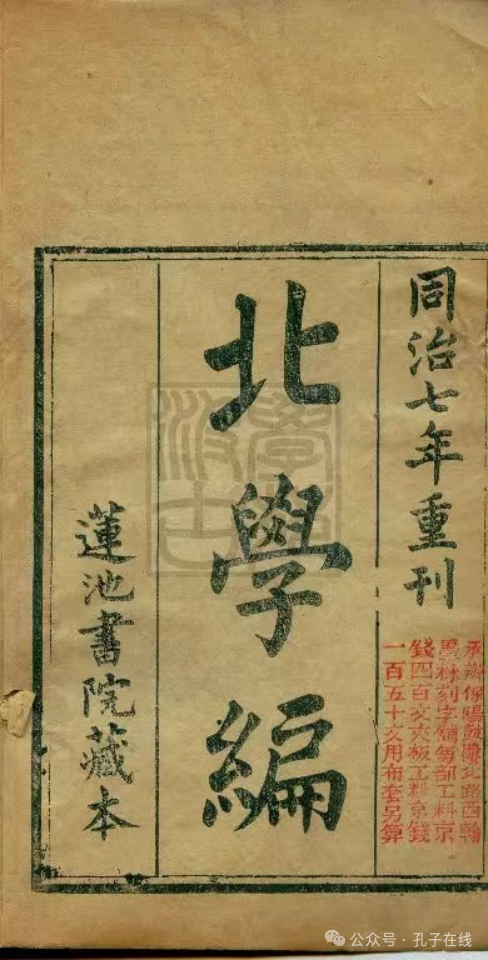 同治七年重刊
承辦保陽鼓樓北路西翰
墨林刻字舖每部工料京
錢四百文夾板工料京錢
一百五十文用布套另算
北學編
蓮池書院藏本
公众号·孔子在线